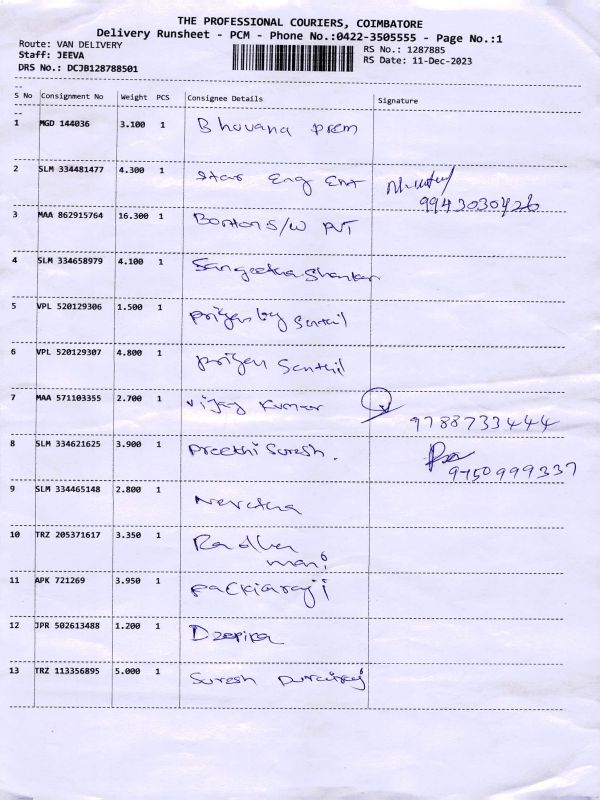 THE PROFESSIONAL COURIERS, COIMBATORE
Delivery Runsheet - PCM - Phone No.:0422-3505555 - Page No.:1
Route: VAN DELIVERY RS No.: 1287885
Staff: JEEVA RS Date: 11-Dec-2023
DRS No.: DCJB128788501
S No Consignment No Weight PCS Consignee Details Signature
1 MGD 144036 3.100 1 Bhuvana Prem
2 SLM 334481477 4.300 1 Star Eng Ent
9943030426
3 MAA 862915764 16.300 1 S/W PVT
4 SLM 334658979 4.100 1 Sangeetha Shankar
5 VPL 520129306 1.500 1 Senthil
6 VPL 520129307 4.800 1 Senthil
7 MAA 571103355 2.700 1 Vijay Kumar
9788733444
8 SLM 334621625 3.900 1 Preethi Suresh.
9750999337
9 SLM 334465148 2.800 1
10 TRZ 205371617 3.350 1 Radha
mani
11 APK 721269 3.950 1 Packiaraji
12 JPR 502613488 1.200 1 Deepika
13 TRZ 113356895 5.000 1 Suresh Durairaj